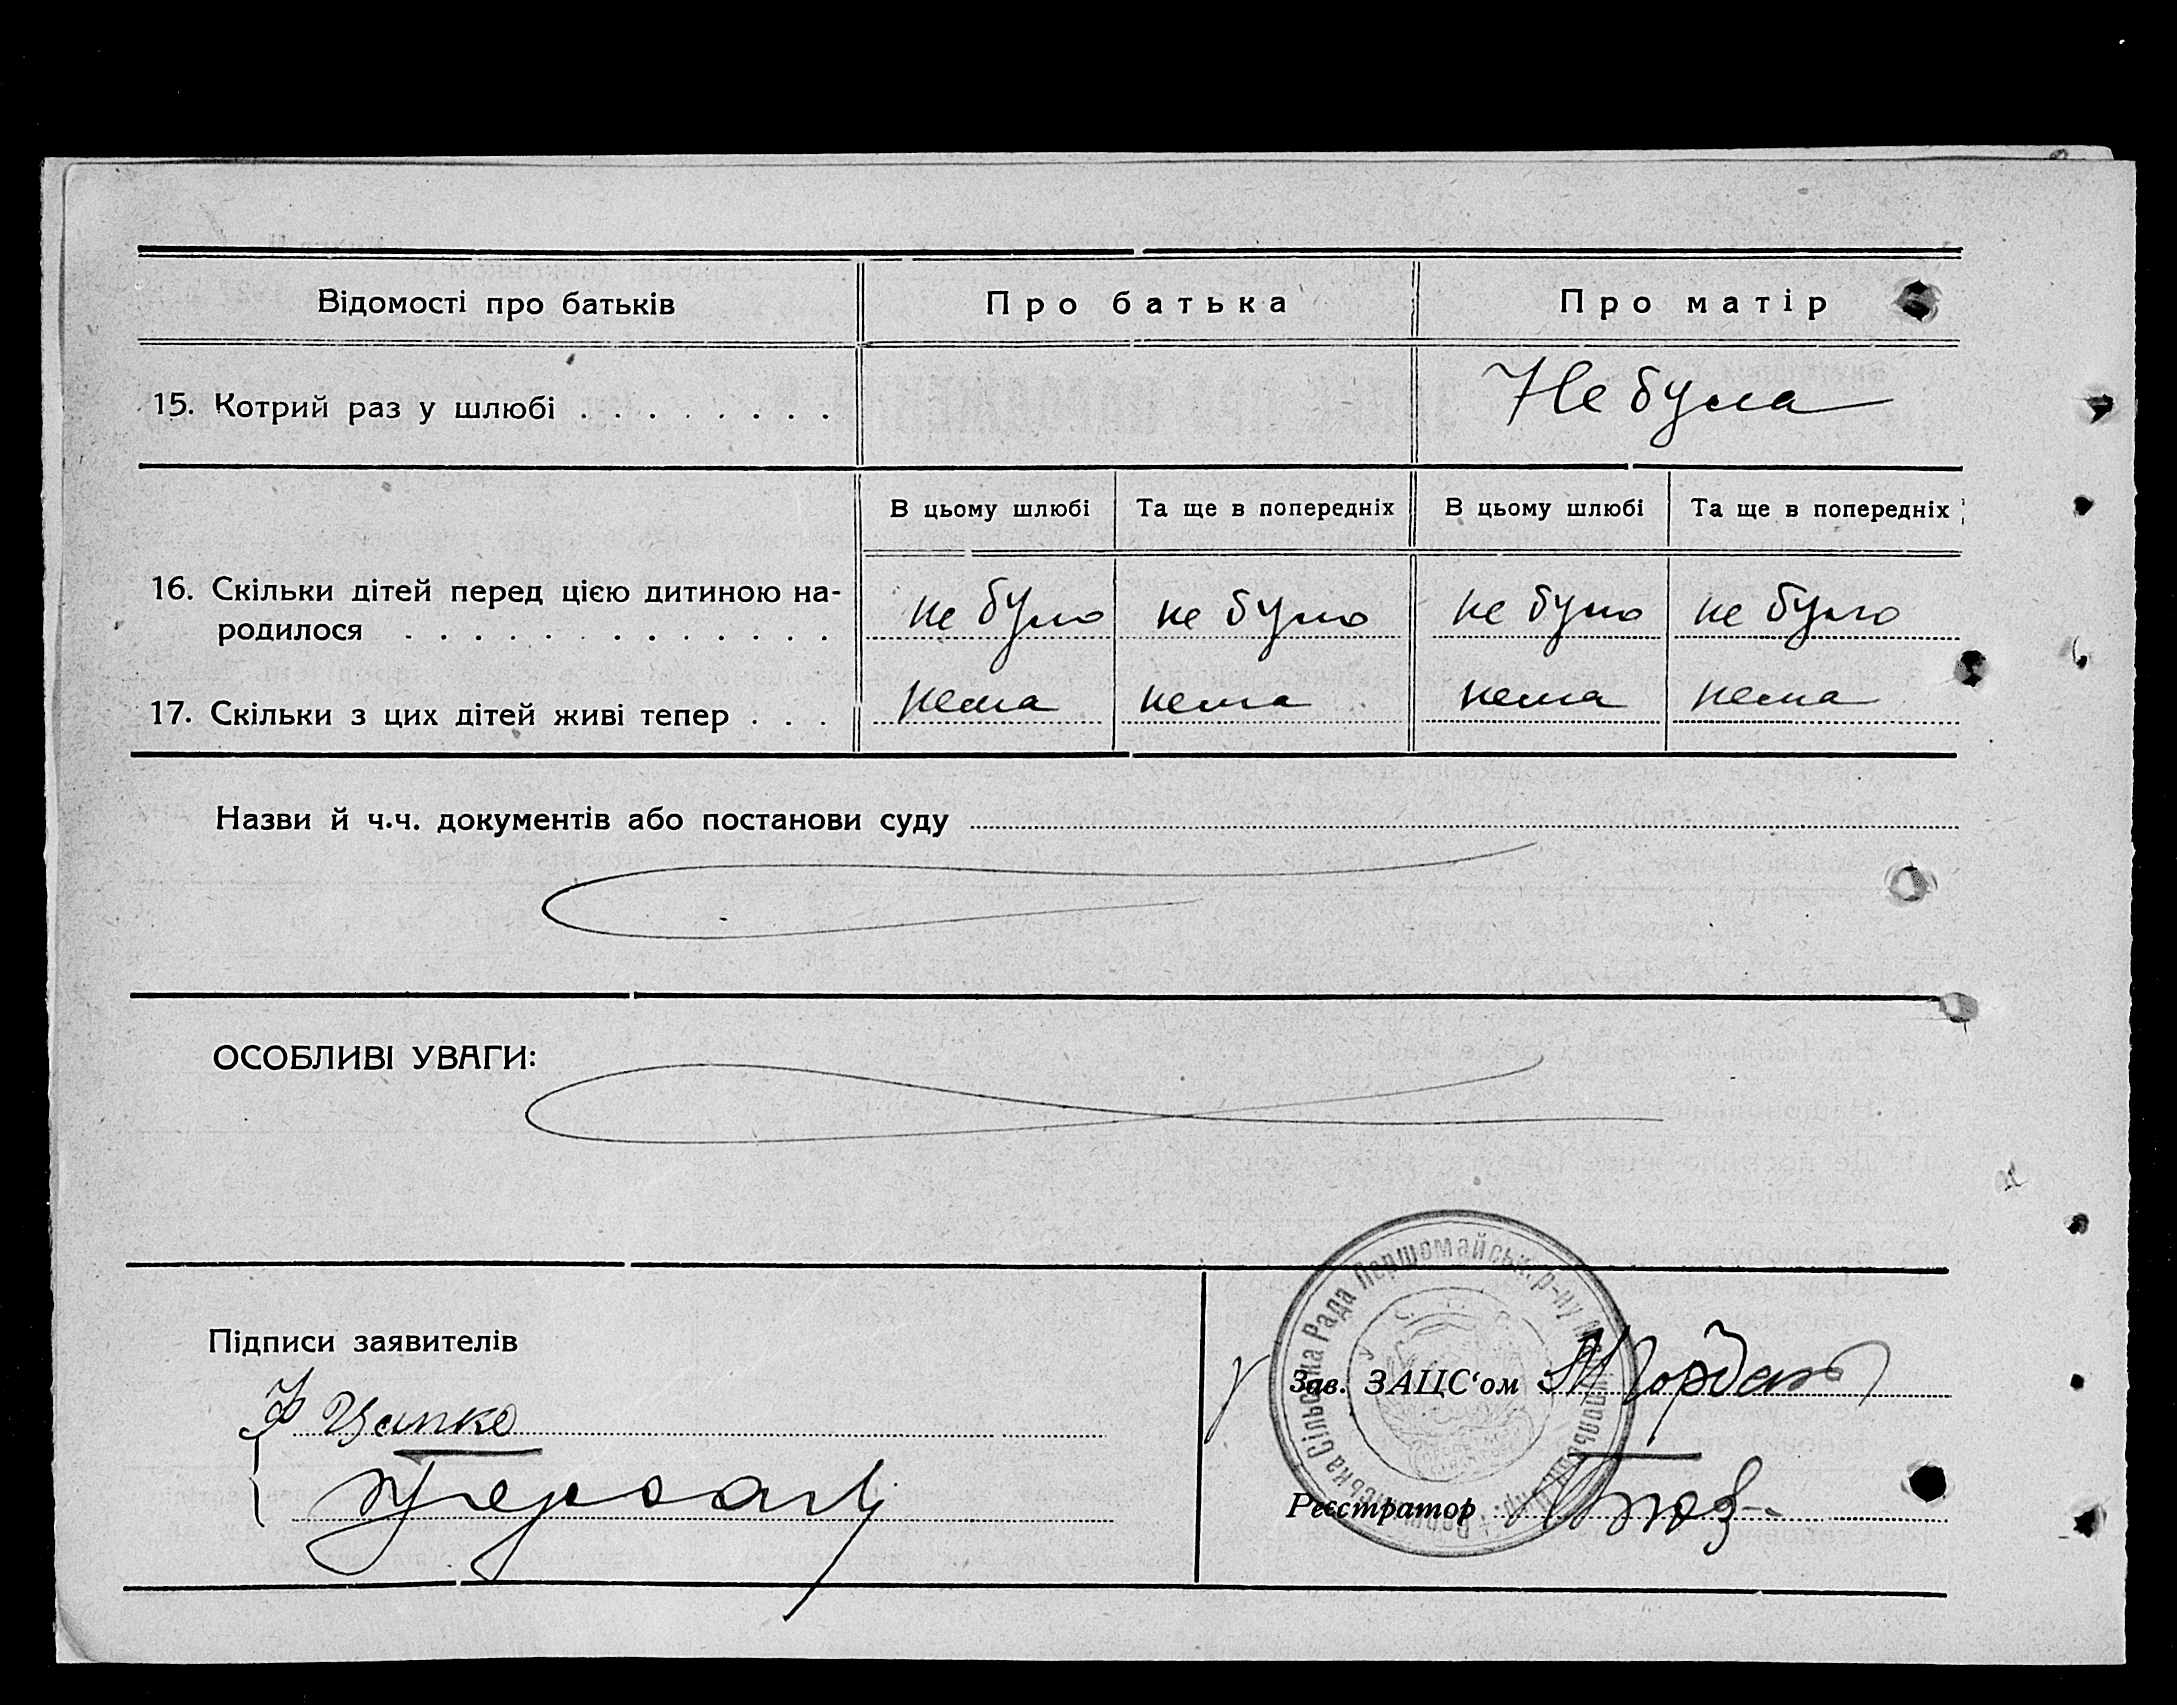 Відомості про батьків
Про батька
Про матір
15. Котрий раз у шлюбі . . . . . . . .
Не була
В цьому шлюбі
Та ще в попередніх
В цьому шлюбі
Та ще в попередніх
16. Скільки дітей перед цією дитиною на-
родилося . . . . . . . . . . . . .
не було
не було
не було
не було
17. Скільки з цих дітей живі тепер . . .
нема
нема
нема
нема
Назви й ч.ч. документів або постанови суду
ОСОБЛИВІ УВАГИ:
Підписи заявителів
Зав. ЗАЦС‘ом
Реєстратор
Сільська Рада Першомайськ. р-ну